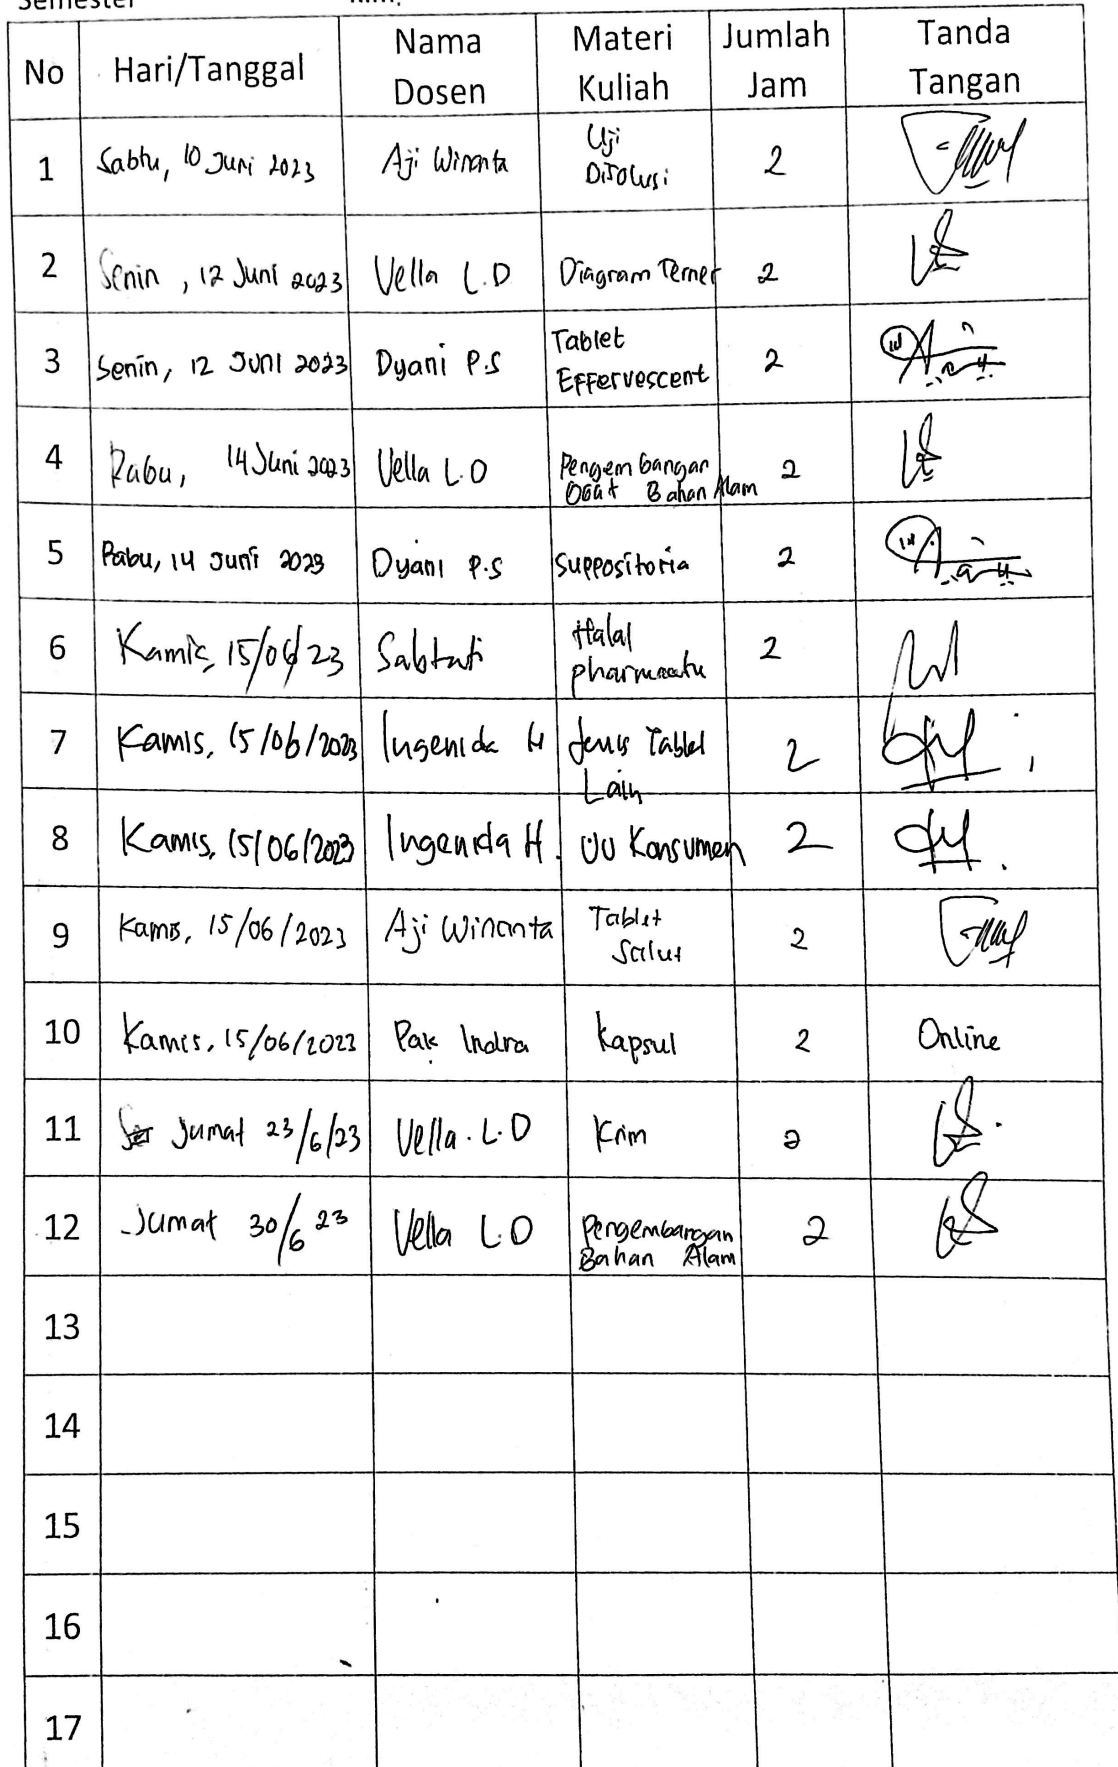 Semester
No Hari/Tanggal Nama Dosen Materi Kuliah Jumlah Jam Tanda Tangan
1 Sabtu, 10 Juni 2023 Aji Winanta Uji Disolusi 2
2 Senin, 12 Juni 2023 Vella L.D Diagram Terner 2
3 Senin, 12 Juni 2023 Dyani P.S Tablet Effervescent 2
4 Rabu, 14 Juni 2023 Vella L.D Pengembangan Obat Bahan Alam 2
5 Rabu, 14 Juni 2023 Dyani P.S Suppositoria 2
6 Kamis, 15/06/23 Sabtuti Halal 2
7 Kamis, 15/06/2023 Ingenida H Jenis Tablet Lain 2
8 Kamis, 15/06/2023 Ingenida H. UU Konsumen 2
9 Kamis, 15/06/2023 Aji Winanta Tablet Salut 2
10 Kamis, 15/06/2023 Pak Indra Kapsul 2 Online
11 Jumat 23/6/23 Vella. L.D Krim 2
12 Jumat 30/6 23 Vella L.D Pengembangan Bahan Alam 2
13
14
15
16
17